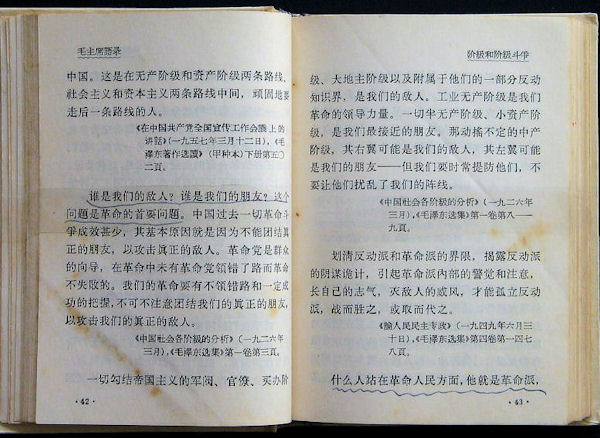 毛主席語录
中国。这是在无产阶级和资产阶级两条路线、
社会主义和资本主义两条路线中间,頑固地要
走后一条路线的人。
《在中国共产党全国宣传工作会議上的
讲話》(一九五七年三月十二日),《毛
澤东著作选讀》(甲种本)下册第五〇
二頁。
誰是我们的敌人?誰是我们的朋友?这个
問題是革命的首要問題。中国过去一切革命斗
爭成效甚少,其基本原因就是因为不能团結真
正的朋友,以攻击真正的敌人。革命党是群众
的向导,在革命中未有革命党領错了路而革命
不失敗的。我们的革命要有不領错路和一定成
功的把握,不可不注意团結我们的真正的朋友,
以攻击我们的真正的敌人。
《中国社会各阶級的分析》(一九二六年
三月),《毛澤东选集》第一卷第三頁。
一切勾结帝国主义的军阀、官僚、买办阶
·42·
阶級和阶級斗爭
级、大地主阶级以及附属于他们的一部分反动
知识界,是我们的敌人。工业无产阶级是我们
革命的领导力量。一切半无产阶级、小资产阶
级,是我们最接近的朋友。那动摇不定的中产
阶级,其右翼可能是我们的敌人,其左翼可能
是我们的朋友——但我们要时常提防他们,不
要让他们扰乱了我们的阵线。
《中国社会各阶級的分析》(一九二六年
三月),《毛澤东选集》第一卷第八——
九頁。
划清反动派和革命派的界限,揭露反动派
的阴谋诡计,引起革命派内部的警觉和注意,
长自己的志气,灭敌人的威风,才能孤立反动
派,战而胜之,或取而代之。
《論人民民主专政》(一九四九年六月三
十日),《毛澤东选集》第四卷第一四七
八頁。
什么人站在革命人民方面,他就是革命派,
·43·